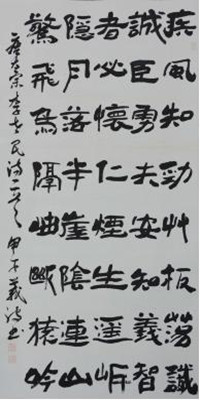 疾風知勁艸板蕩識
誠臣勇夫安知義智
者必懷仁煙生遥岸
隱月落半崖陰連山
驚飛鳥隔岫斷猿吟
唐太宗李世民詩二首 甲午 義 書